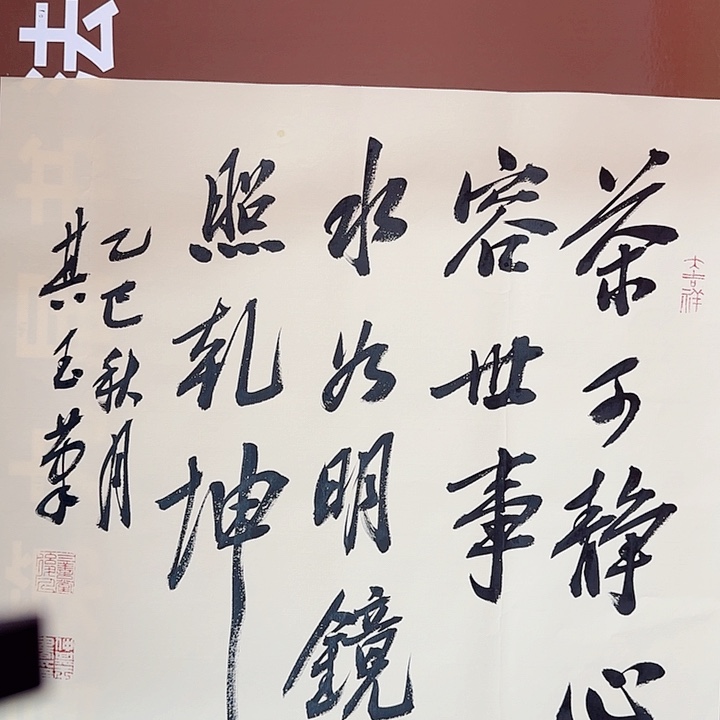 茶可静心
容世事
水如明镜
照乾坤
乙巳秋月
其玉笔
大吉祥
法